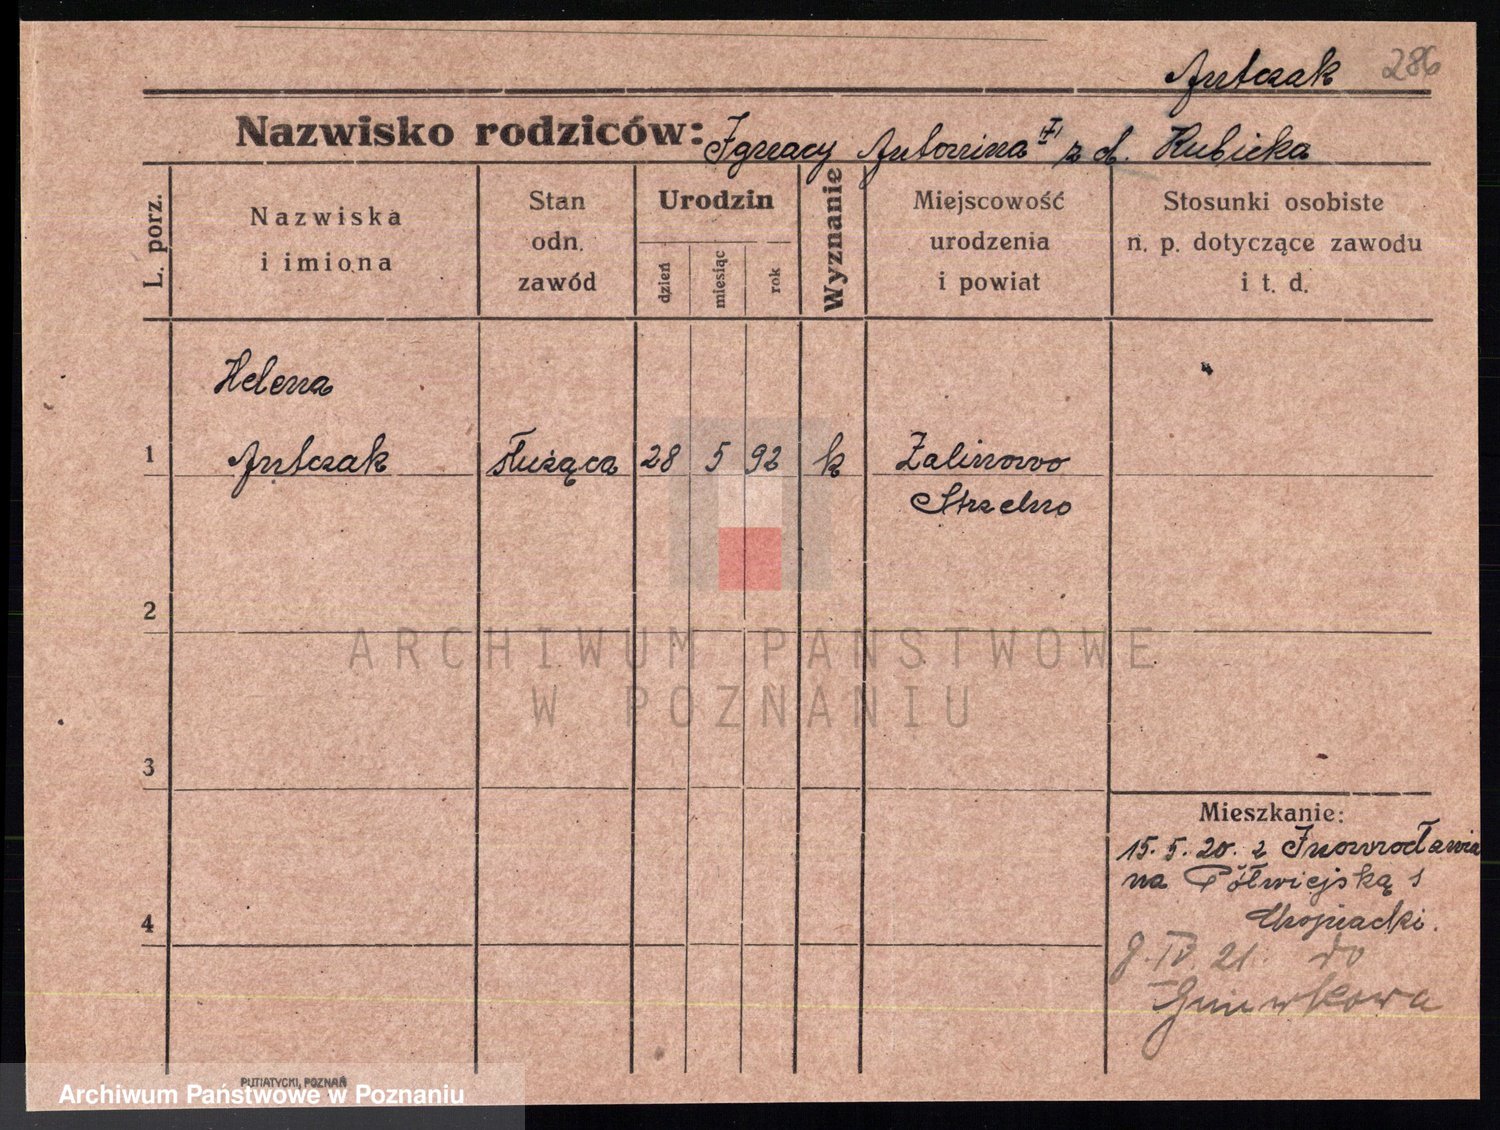 Antczak 286
Nazwisko rodziców: Ignacy Antonina z d. Kubicka
L. porz.
Nazwiska
i imiona
Stan
odn.
zawód
Urodzin
dzień
miesiąc
rok
Wyznanie
Miejscowość
urodzenia
i powiat
Stosunki osobiste
n. p. dotyczące zawodu
i t. d.
Helena
1 Antczak służąca 28 5 92 k Zalinowo
Strzelno
2
ARCHIWUM PAŃSTWOWE
W POZNANIU
3
Mieszkanie:
15. 5. 20. z Inowrocławia
na Półwiejską 1
4
9. IV 21. do
Gniewkowa
PUTIATYCKI, POZNAŃ
Archiwum Państwowe w Poznaniu